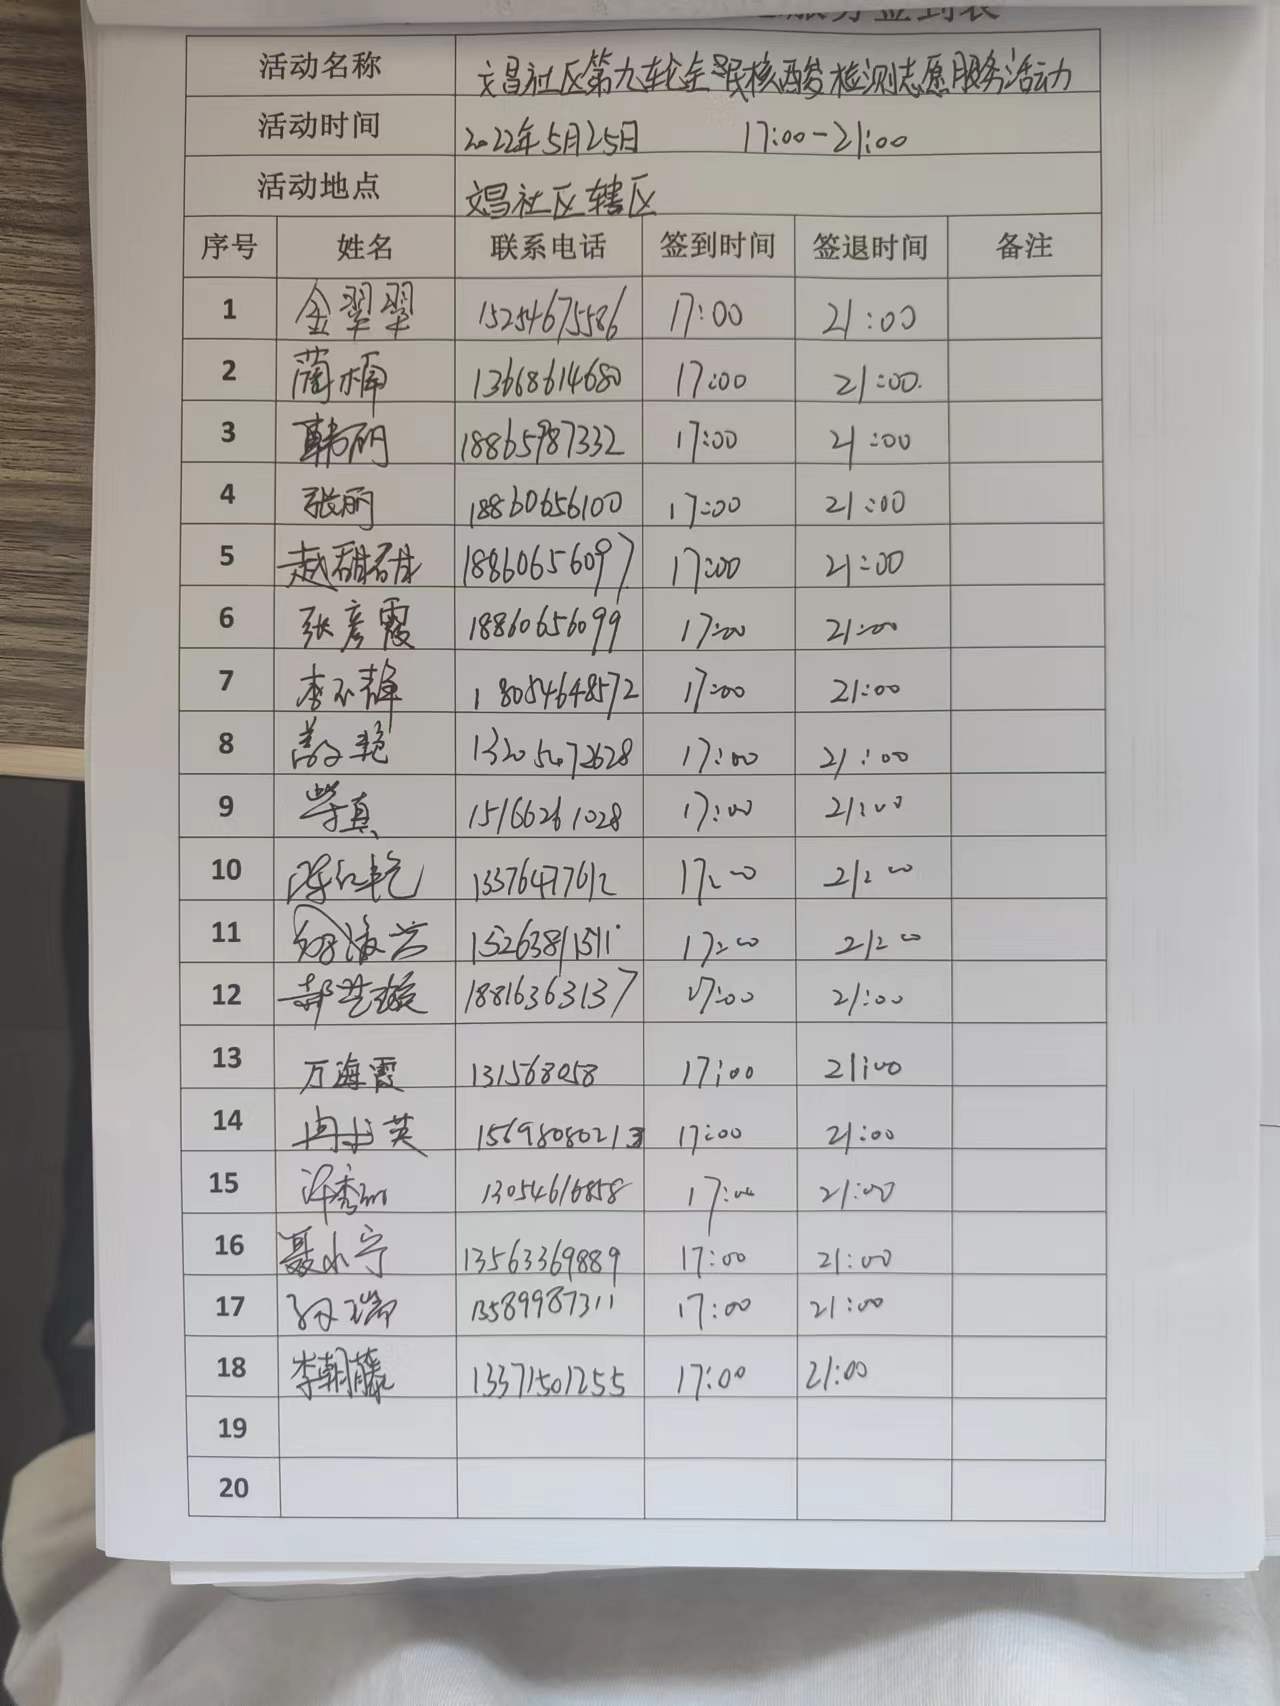 服务签到表
活动名称 文昌社区第九轮全民核酸检测志愿服务活动
活动时间 2022年5月25日 17:00-21:00
活动地点 文昌社区辖区
序号 姓名 联系电话 签到时间 签退时间 备注
1 金翠翠 15254675586 17:00 21:00
2 蔺楠 13668614680 17:00 21:00
3 韩丽 18865987332 17:00 21:00
4 张丽 18860656100 17:00 21:00
5 赵 18860656097 17:00 21:00
6 张彦霞 18860656099 17:00 21:00
7 李 18054648572 17:00 21:00
8 13205472628 17:00 21:00
9 柴真 15166261028 17:00 21:00
10 陈红艳 13376477612 17:00 21:00
11 15263811511 17:00 21:00
12 郝艺璇 18816363137 17:00 21:00
13 万海霞 131568058 17:00 21:00
14 英 15698080213 17:00 21:00
15 许秀丽 13054616858 17:00 21:00
16 聂小宁 13563369889 17:00 21:00
17 孙瑞 13589987311 17:00 21:00
18 李朝藤 13371501255 17:00 21:00
19
20